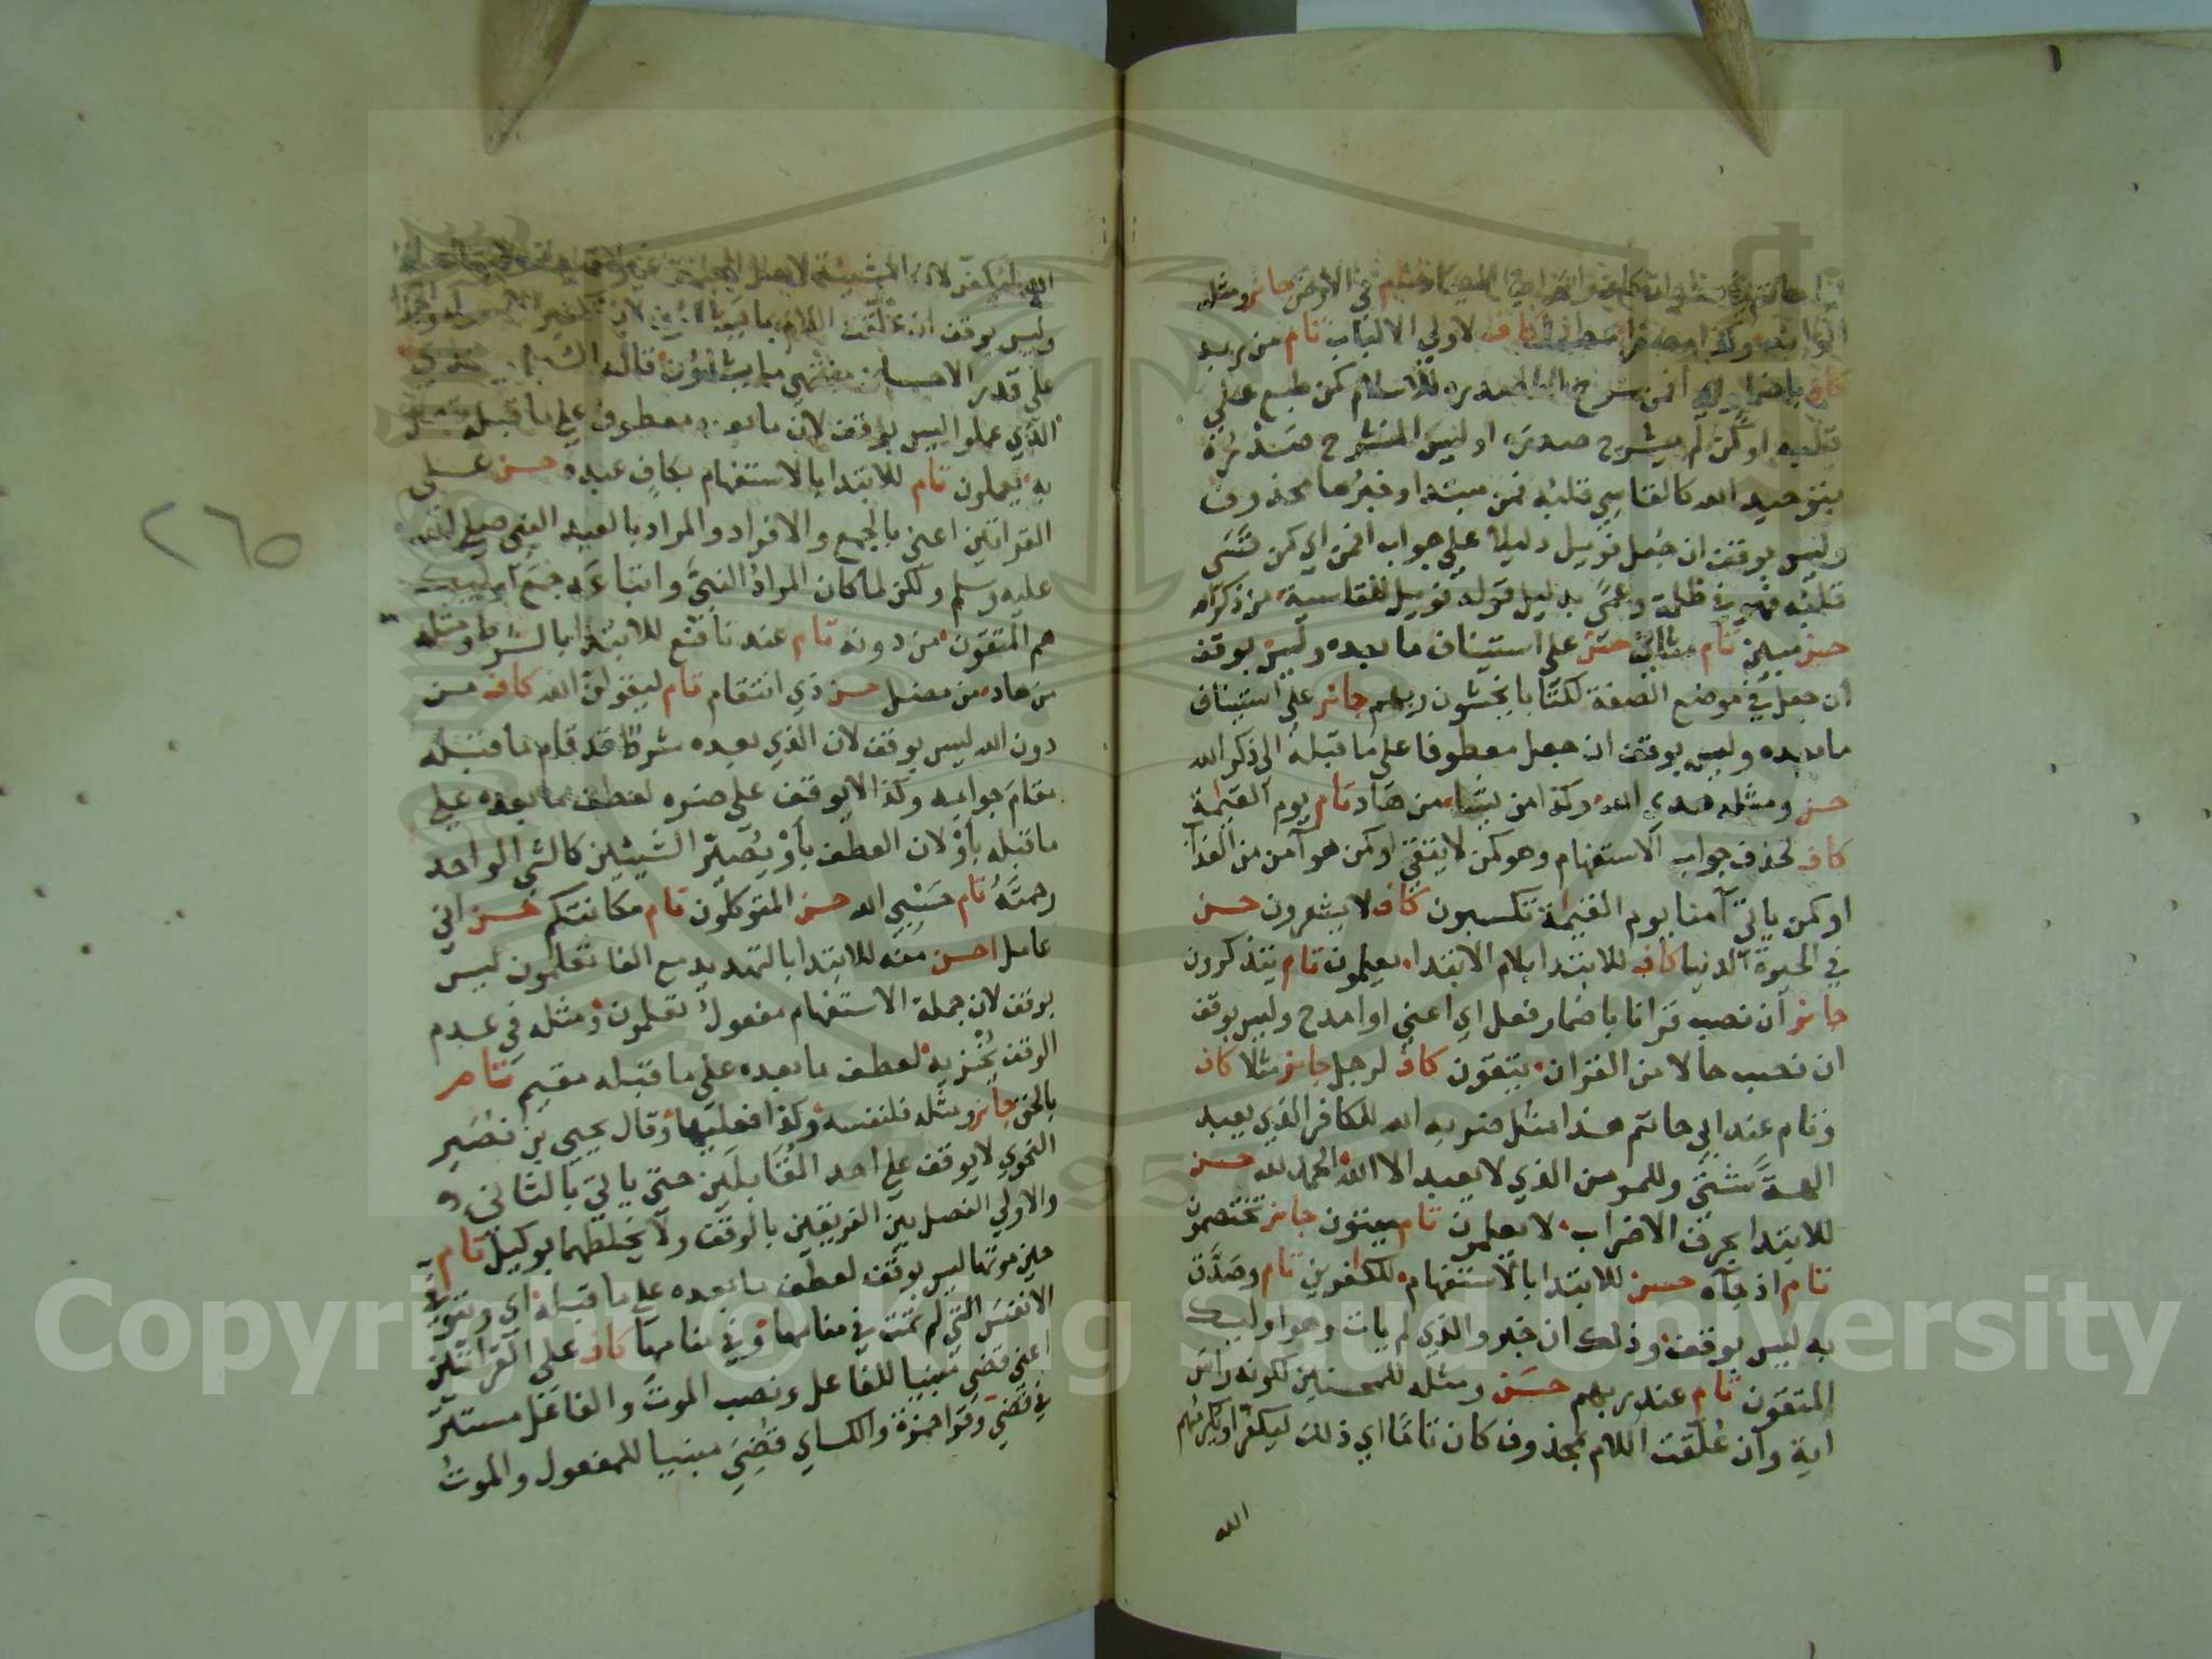 في الارض جائز ومثله
الوانه وكذا مصفرا حطاما كاف لاولي الالباب تام من يريد
كاف باضمار اي أفمن شرح الله صدره للاسلام كمن طبع على
قلبه او كمن لم يشرح صدره او ليس المنشرح صدره
بتوحيد الله كالقاسي قلبه فمن مبتدا وخبرها محذوف
وليس بوقف ان جعل فويل دليلا على جواب افمن اي كمن قسى
قلبه فهو في ظلمة وعمى بدليل قوله فويل للقاسية من ذكر الله
حسن مبين تام مثاني حسن على استيناف ما بعده وليس بوقف
ان جعل في موضع الصفة لكتابا يخشون ربهم جائز على استيناف
ما بعده وليس بوقف ان جعل معطوفا على ما قبله الى ذكر الله
حسن ومثله هدى الله وكذا من يشاء من هاد تام يوم القيمة
كاف لحذف جواب الاستفهام وهو كمن لا يتقي او كمن هو آمن من العذاب
او كمن ياتي آمنا يوم القيمة تكسبون كاف لا يشعرون حسن
في الحيوة الدنيا كاف للابتدا بلام الابتدا يعلمون تام يتذكرون
جائز ان نصب قرانا باضمار فعل اي اعني او امدح وليس بوقف
ان نصب حالا من القران يتقون كاف لرجل جائز مثلا كاف
وتام عند ابي حاتم هذا مثل ضربه الله للكافر الذي يعبد
الهة شتى وللمومن الذي لا يعبد الا الله الحمد لله حسن
للابتدا بحرف الاضراب لا يعلمون تام ميتون جائز تختصمون
تام اذ جآه حسن للابتدا بالاستفهام للكافرين تام وصدق
به ليس بوقف وذلك ان خبر والذي لم يات وهو اوليك
المتقون تام عند ربهم حسن ومثله للمحسنين لكونه راس
اية وان علقت اللام بمحذوف كان تاما اي ذلك ليكفر او يكرمهم
الله
الله ليكفر لان المشيئة لاهل الجنة
وليس بوقف ان علقت اللام بما يشاؤن لان تكفير
على قدر الاحسان منتهى ما يشاؤن قاله
الذي عملوا ليس بوقف لان ما بعده معطوف على ما قبله
به يعملون تام للابتدا بالاستفهام بكاف عبده حسن على
القراتين اعني بالجمع والافراد والمراد بالعبد النبي صلى الله
عليه وسلم ولكن لما كان المراد النبي واتباعه جمع اوليك
هم المتقون من دونه تام عند نافع للابتدا بالشرط ومثله
من هاد من مضل حسن ذي انتقام تام ليقولن الله كاف من
دون الله ليس بوقف لان الذي بعده شرط قد قام ما قبله
مقام جوابه وكذا لا يوقف على ضره لعطف ما بعده على
ما قبله بأو لان العطف بأو يصير الشيئين كالشي الواحد
رحمته تام حسبي الله حسن المتوكلون تام مكانتكم حسن اني
عامل احسن منه للابتدا بالتهديد مع الفا تعلمون ليس
بوقف لان جملة الاستفهام مفعول تعلمون ومثله في عدم
الوقف يخزيه لعطف ما بعده على ما قبله مقيم تام
بالحق جائز ومثله فلنفسه وكذا فعليها وقال يحيى بن نصير
النحوي لا يوقف على احد المقابلين حتى ياتي بالثاني
والاولى الفصل بين الفريقين بالوقف ولا يخلطهما بوكيل تام
حين موتها ليس بوقف لعطف ما بعده على ما قبله اي ويتوفى
الانفس التي لم تمت في منامها وفي منامها كاف على القراتين
اعني قضى مبنيا للفاعل ونصب الموت والفاعل مستتر
في قضى وقرا حمزة والكساي قضي مبنيا للمفعول والموت
٢٦٥
Copyright © King Saud University
1957